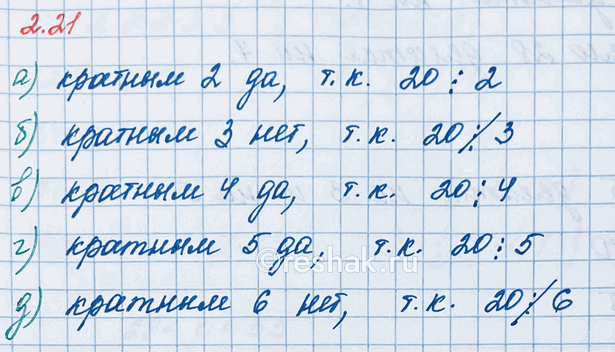 2.21
а) кратным 2 да, т.к. 20 ⋮ 2
б) кратным 3 нет, т.к. 20 ⋮̸ 3
в) кратным 4 да, т.к. 20 ⋮ 4
г) кратным 5 да, т.к. 20 ⋮ 5
д) кратным 6 нет, т.к. 20 ⋮̸ 6
©reshak.ru